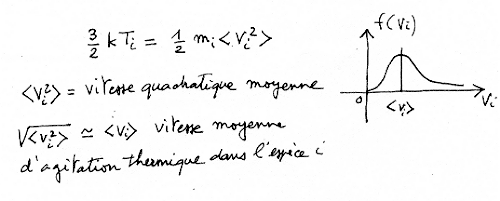 3/2 k Ti = 1/2 mi <Vi²>
<Vi²> = vitesse quadratique moyenne
√<vi²> ≃ <Vi> vitesse moyenne
d'agitation thermique dans l'espèce i
f(Vi)
0
<Vi>
Vi